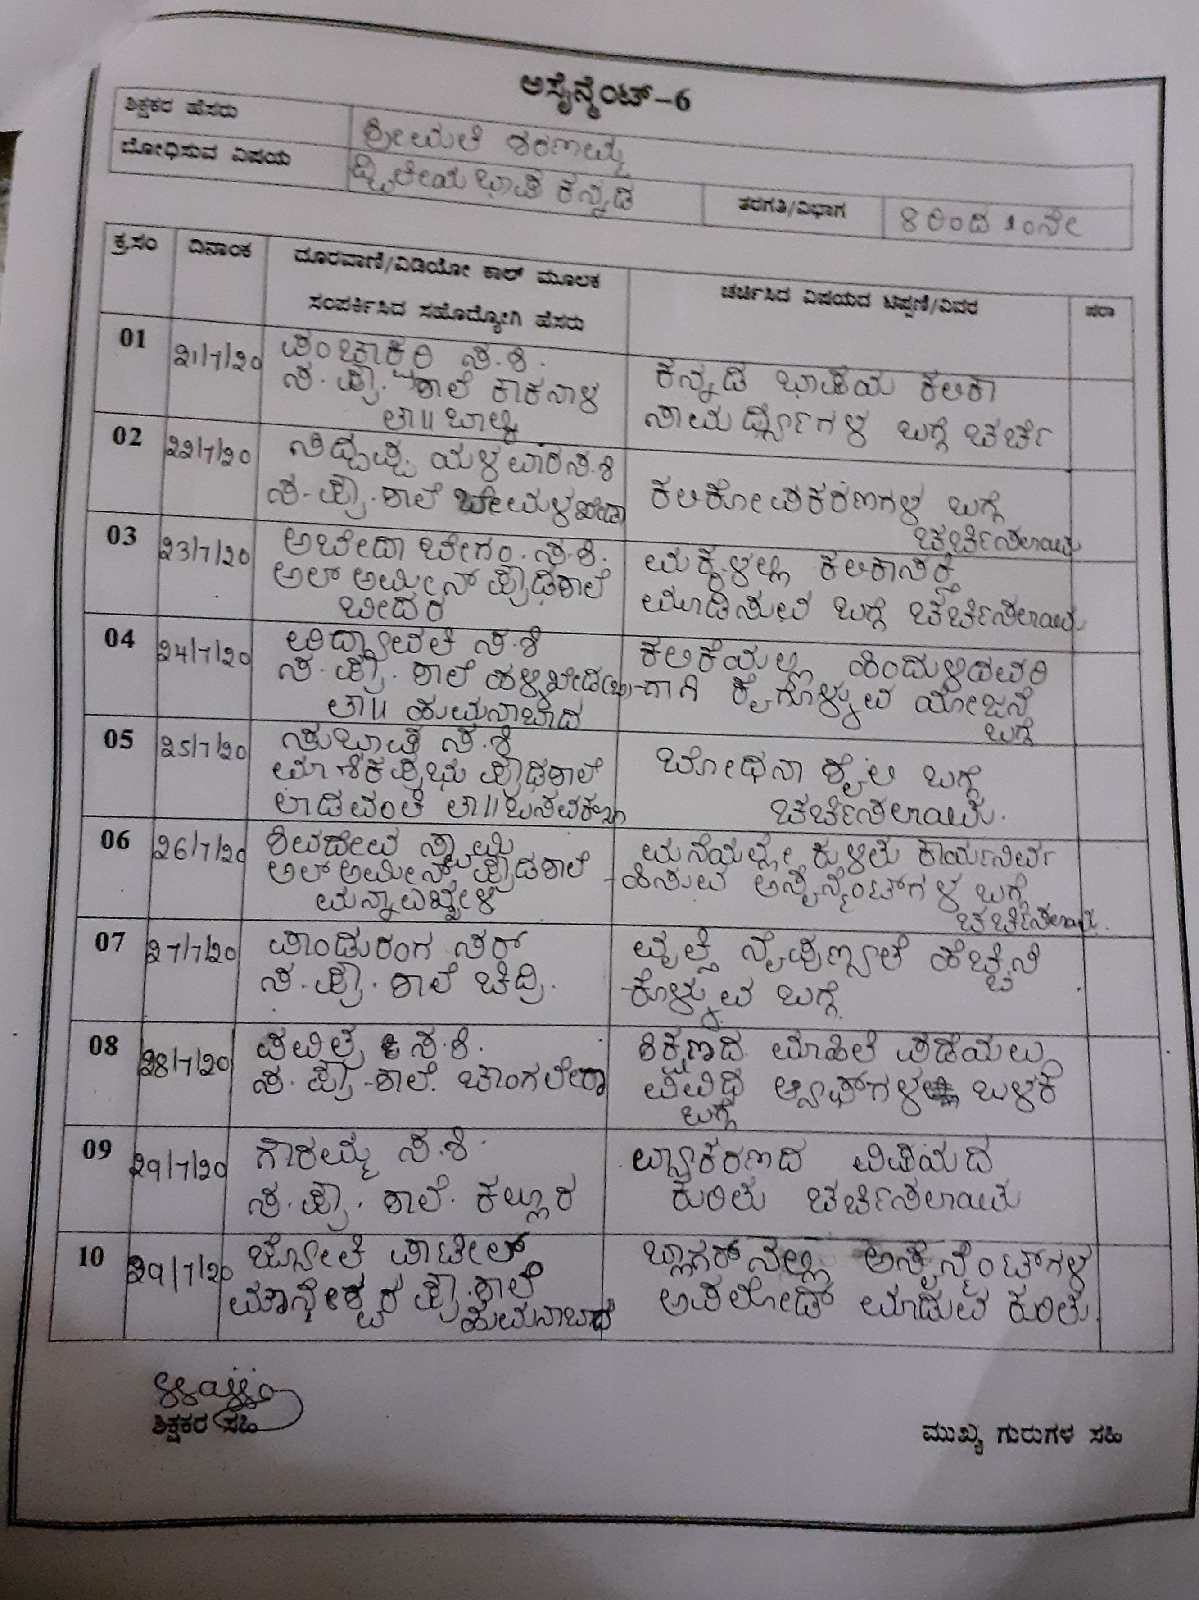 ಅಸೈನ್ಮೆಂಟ್-6
ಶಿಕ್ಷಕರ ಹೆಸರು ಶ್ರೀಮತಿ ಶರಣಮ್ಮ
ಬೋಧಿಸುವ ವಿಷಯ ದ್ವಿತೀಯ ಭಾಷೆ ಕನ್ನಡ ತರಗತಿ/ವಿಭಾಗ 8 ರಿಂದ 10ನೇ
ಕ್ರ.ಸಂ ದಿನಾಂಕ ದೂರವಾಣಿ/ವಿಡಿಯೋ ಕಾಲ್ ಮೂಲಕ ಚರ್ಚಿಸಿದ ವಿಷಯದ ಟಿಪ್ಪಣಿ/ವಿವರ ಷರಾ
ಸಂಪರ್ಕಿಸಿದ ಸಹೊದ್ಯೋಗಿ ಹೆಸರು
01 21/7/20 ಪಂಚಾಕ್ಷರಿ ಸ.ಶಿ. ಕನ್ನಡ ಭಾಷೆಯ ಕಲಿಕಾ
ಸ.ಪ್ರೌ. ಶಾಲೆ ಕಾಕನಾಳ ಸಾಮರ್ಥ್ಯಗಳ ಬಗ್ಗೆ ಚರ್ಚೆ
ತಾ॥ ಬಾಲ್ಕಿ
02 22/7/20 ಸಿದ್ದಪ್ಪ ಯಳವಾರ ಸ.ಶಿ ಕಲಿಕೋಪಕರಣಗಳ ಬಗ್ಗೆ
ಸ.ಪ್ರೌ.ಶಾಲೆ ಬೇಮಳಖೇಡಾ ಚರ್ಚಿಸಲಾಯಿತು
03 23/7/20 ಅಬೇದಾ ಬೇಗಂ. ಸ.ಶಿ. ಮಕ್ಕಳಲ್ಲಿ ಕಲಿಕಾಸಕ್ತಿ
ಅಲ್ ಅಮೀನ್ ಪ್ರೌಢಶಾಲೆ ಮೂಡಿಸುವ ಬಗ್ಗೆ ಚರ್ಚಿಸಲಾಯಿತು
ಬೀದರ
04 24/7/20 ವಿದ್ಯಾವತಿ ಸ.ಶಿ ಕಲಿಕೆಯಲ್ಲಿ ಹಿಂದುಳಿದವರಿ
ಸ.ಪ್ರೌ. ಶಾಲೆ ಹಳ್ಳಿಖೇಡ(ಬಿ) -ಗಾಗಿ ಕೈಗೊಳ್ಳುವ ಯೋಜನೆ
ತಾ॥ ಹುಮನಾಬಾದ ಬಗ್ಗೆ
05 25/7/20 ಸುಭಾಷ ಸ.ಶಿ ಬೋಧನಾ ಶೈಲಿ ಬಗ್ಗೆ
ಮಾಣಿಕಪ್ರಭು ಪ್ರೌಢಶಾಲೆ ಚರ್ಚಿಸಲಾಯಿತು.
ಲಾಡವಂತಿ ತಾ॥ ಬಸವಕಲ್ಯಾಣ
06 26/7/20 ಶಿವದೇವ ಸ್ವಾಮಿ ಮನೆಯಲ್ಲೇ ಕುಳಿತು ಕಾರ್ಯನಿರ್ವ
ಅಲ್ ಅಮೀನ್ ಪ್ರೌಢಶಾಲೆ -ಹಿಸುವ ಅಸೈನ್ಮೆಂಟ್‌ಗಳ ಬಗ್ಗೆ
ಮನ್ನಾಎಖ್ಖೇಳಿ ಚರ್ಚಿಸಲಾಯಿತು.
07 27/7/20 ಪಾಂಡುರಂಗ ಸರ್ ವೃತ್ತಿ ನೈಪುಣ್ಯತೆ ಹೆಚ್ಚಿಸಿ
ಸ.ಪ್ರೌ. ಶಾಲೆ ಚಿದ್ರಿ. -ಕೊಳ್ಳುವ ಬಗ್ಗೆ
08 28/7/20 ಪವಿತ್ರ ಸ.ಶಿ. ಶಿಕ್ಷಣದ ಮಾಹಿತಿ ಪಡೆಯಲು
ಸ.ಪ್ರೌ.ಶಾಲೆ. ಚಾಂಗಲೇರಾ ವಿವಿಧ ಆ್ಯಪ್‌ಗಳ ಬಳಕೆ
ಬಗ್ಗೆ
09 29/7/20 ಗೌರಮ್ಮ ಸ.ಶಿ. ವ್ಯಾಕರಣದ ವಿಷಯದ
ಸ.ಪ್ರೌ. ಶಾಲೆ. ಕಲ್ಲೂರ ಕುರಿತು ಚರ್ಚಿಸಲಾಯಿತು
10 29/7/20 ಜ್ಯೋತಿ ಪಾಟೀಲ್ ಬ್ಲಾಗರ್‌ನಲ್ಲಿ ಅಸೈನ್ಮೆಂಟ್‌ಗಳ
ಪ್ರೌ.ಶಾಲೆ ಅಪಲೋಡ್ ಮಾಡುವ ಕುರಿತು.
ಹುಮನಾಬಾದ
ಶಿಕ್ಷಕರ ಸಹಿ ಮುಖ್ಯ ಗುರುಗಳ ಸಹಿ